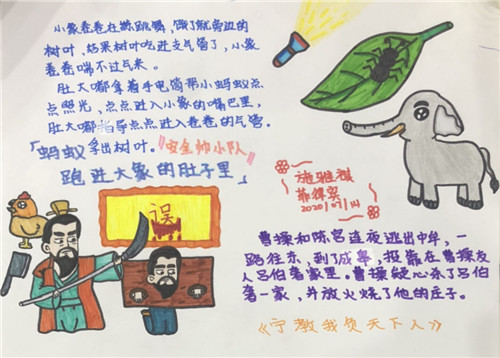 小象卷卷在练跳舞，饿了就旁边的
树叶，结果树叶吃进支气管了，小象
卷卷喘不过气来。
肚大嘟拿着手电筒帮小蚂蚁点
点照光，点点进入小象的嘴巴里，
肚大嘟指导点点进入卷卷的气管。
「蚂蚁拿出树叶。"安全帅小队"
跑进大象的肚子里」
施雅
菲律宾
2020/07/14
误
曹操和陈宫连夜逃出中牟，一
路往东，到了成皋，投靠在曹操友
人吕伯奢家里。曹操疑心杀了吕伯
奢一家，并放火烧了他的庄子。
《宁教我负天下人》